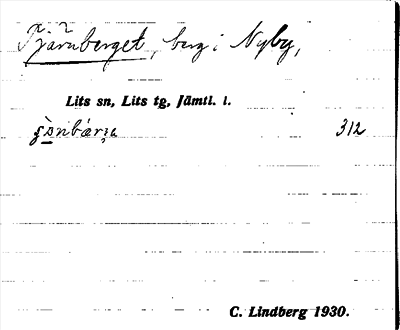 Tjärnberget, berg i Nyby,
Lits sn, Lits tg, Jämtl. l.
312
C. Lindberg 1930.